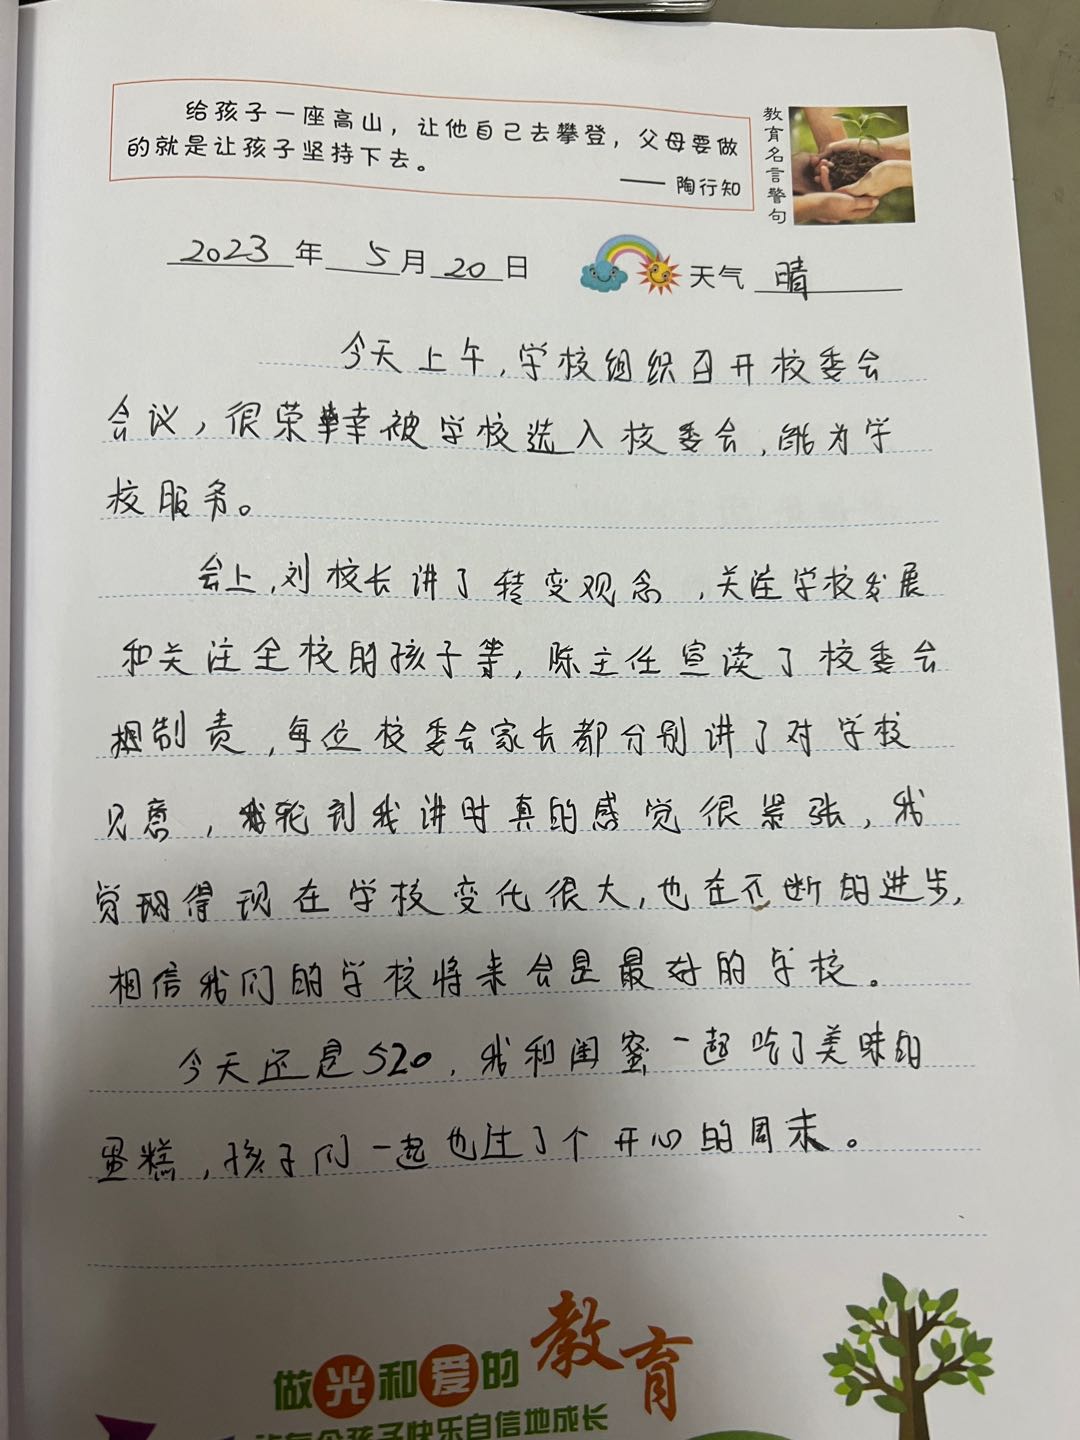 给孩子一座高山，让他自己去攀登，父母要做
的就是让孩子坚持下去。
—— 陶行知
教育名言警句
2023年 5月20日 天气 晴
今天上午，学校组织召开校委会
会议，很荣幸被学校选入校委会，能为学
校服务。
会上，刘校长讲了转变观念，关注学校发展
和关注全校的孩子等，陈主任宣读了校委会
制责，每位校委会家长都分别讲了对学校
见意，轮到我讲时真的感觉很紧张，我
觉得现在学校变化很大，也在不断的进步，
相信我们的学校将来会是最好的学校。
今天还是520，我和闺蜜一起吃了美味的
蛋糕，孩子们一起也过了个开心的周末。
做光和爱的教育
让每个孩子快乐自信地成长